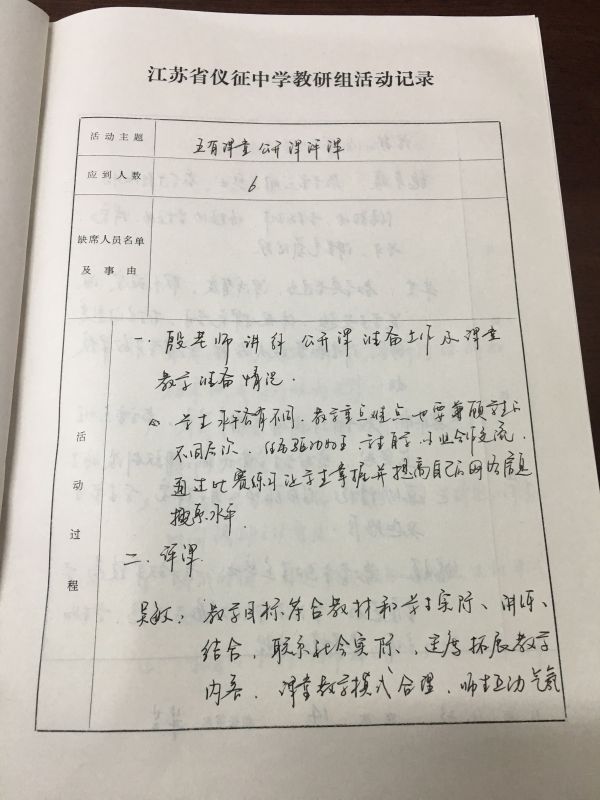 江苏省仪征中学教研组活动记录
活动主题 五有课堂公开课评课
应到人数 6
缺席人员名单
及事由
活动过程
一、殷老师讲解公开课准备工作及课堂
教学准备情况.
学生水平各有不同,教学重点难点也要兼顾学生的
不同层次,任务驱动为主,让自学、小业合作交流,
通过比赛练习让学生掌握并提高自己的网络信息
搜索水平.
二、评课
吴敏:教学目标符合教材和学生实际、讲练、
结合,联系社会实际、适度拓展教学
内容,课堂教学模式合理,师生互动气氛